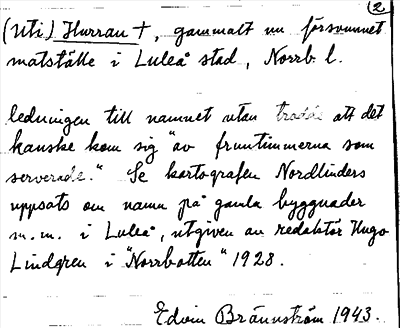 2
(Uti) Hurran †, gammalt nu försvunnet
matställe i Luleå stad, Norrb. l.
ledningen till namnet utan trodde att det
kanske kom sig "av fruntimmerna som
serverade." Se kartografen Nordlinders
uppsats om namn på gamla byggnader
m.m. i Luleå, utgiven av redaktör Hugo
Lindgren i "Norrbotten" 1928.
Edvin Brännström 1943.